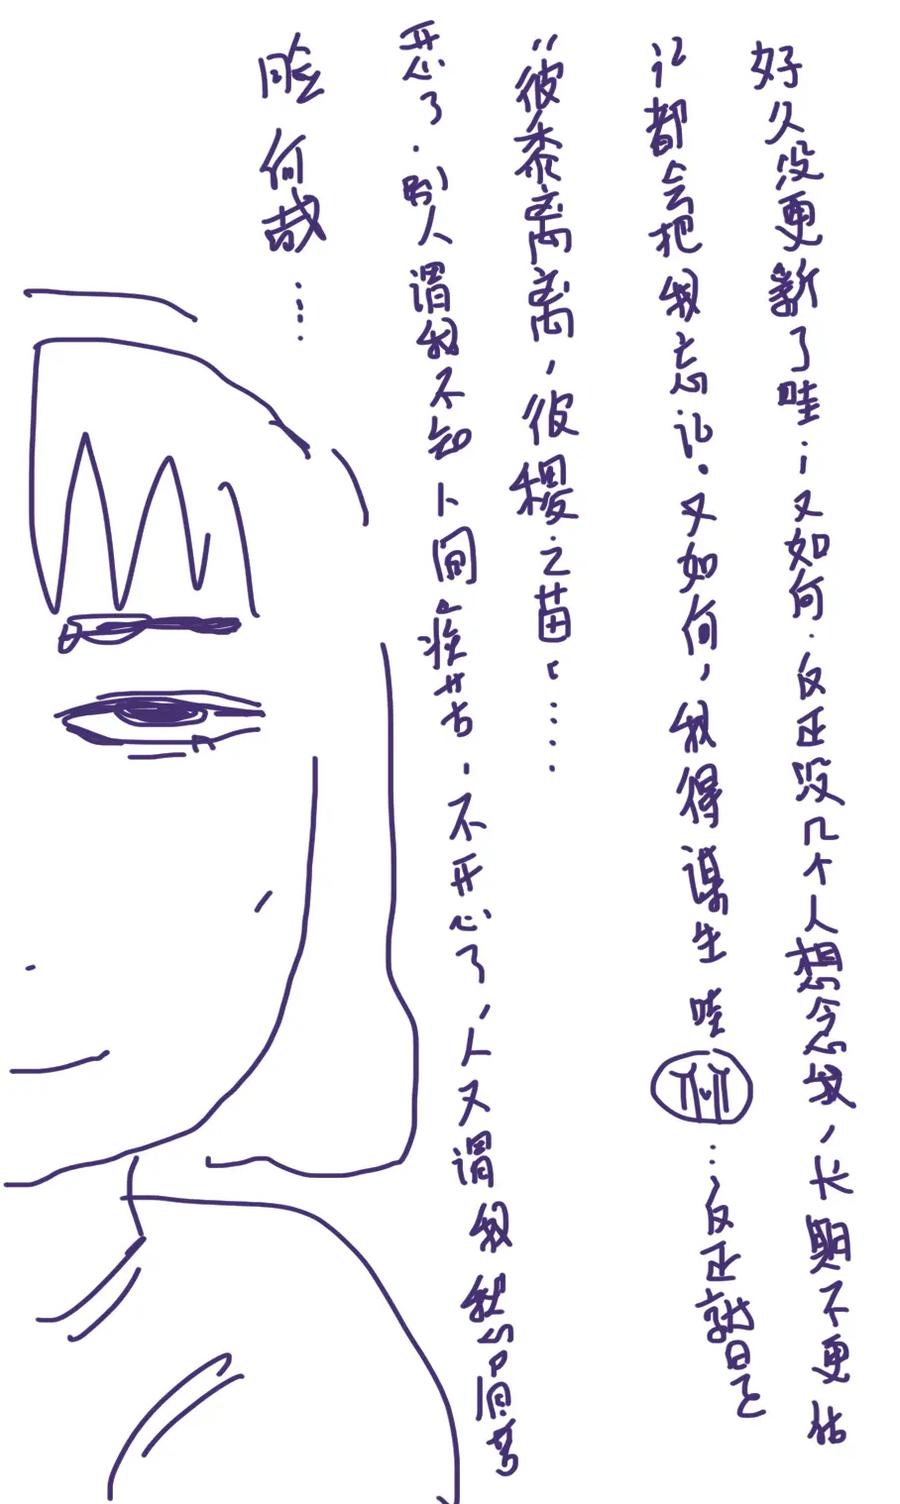 好久没更新了哇；又如何．反正没几个人想念我，长期不更估
计都会把我忘记．又如何，我得谋生哇…反正就是
“彼黍离离，彼稷之苗……
恶了．别人谓我不知卜间疾苦．不开心了，人又谓我
脸何哉……